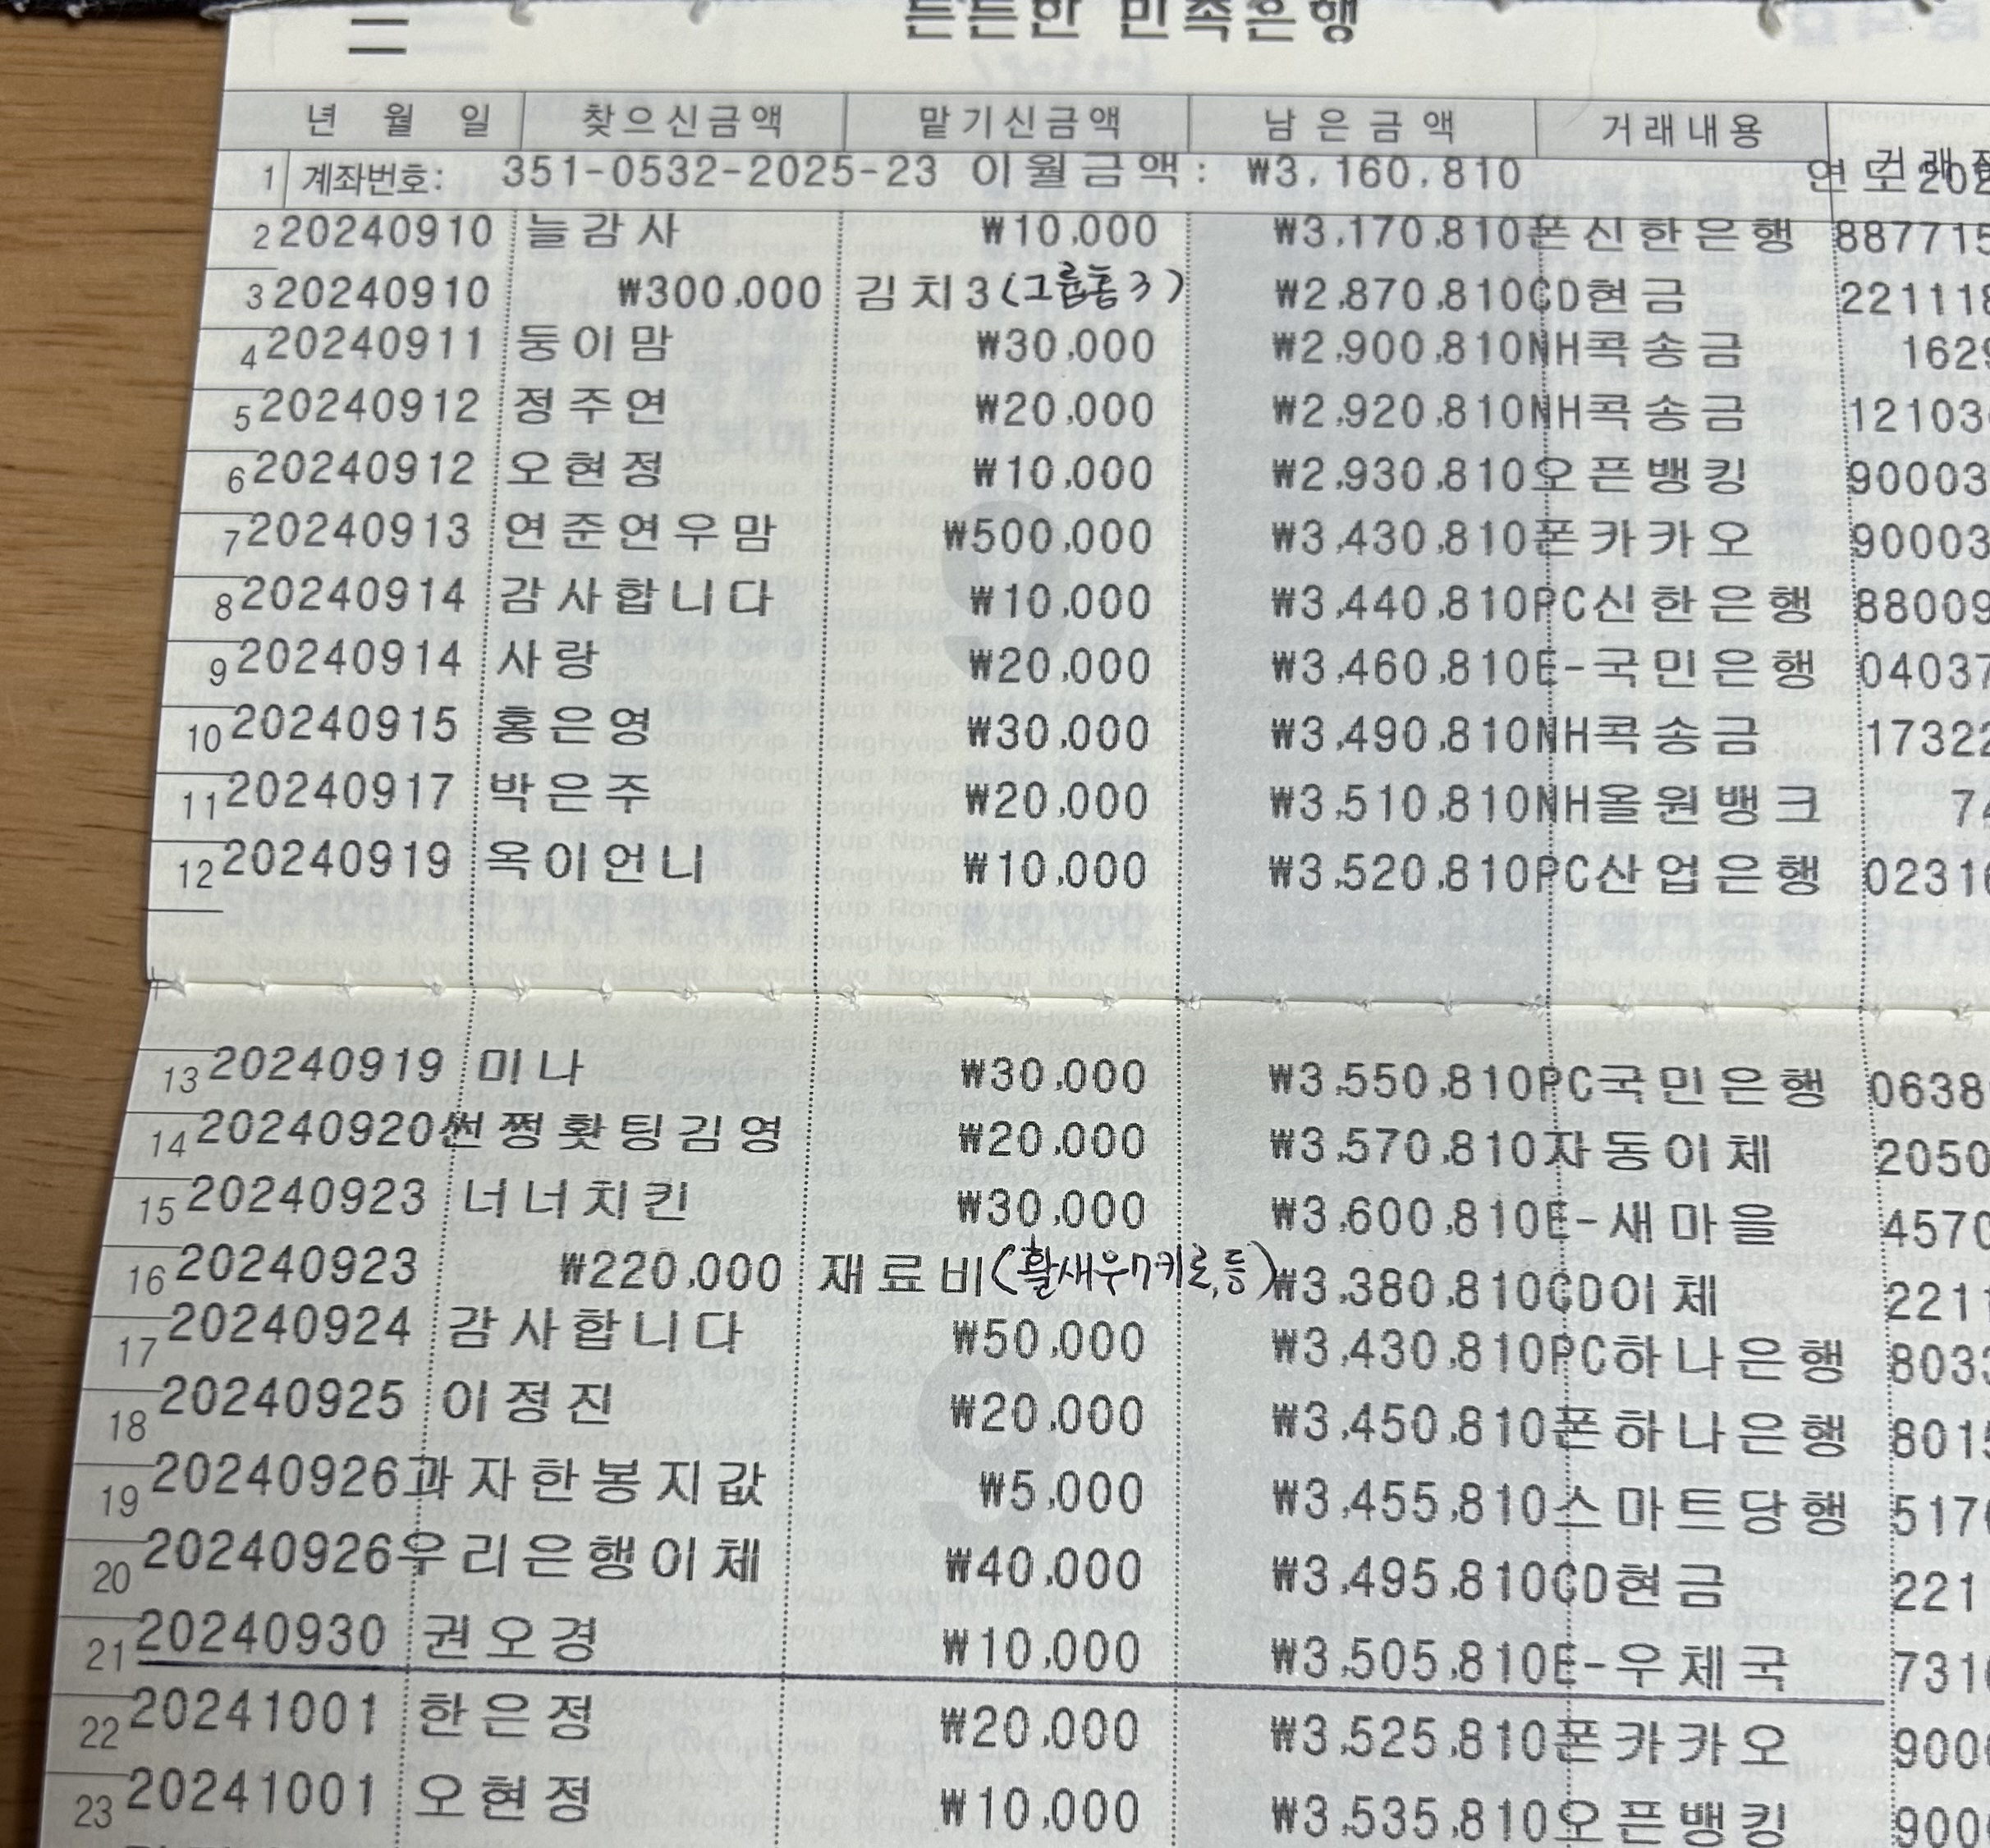 든든한 민족은행
년 월 일 찾으신금액 맡기신금액 남은금액 거래내용
1 계좌번호: 351-0532-2025-23 이월금액: ₩3,160,810
2 20240910 늘감사 ₩10,000 ₩3,170,810 폰신한은행 887715
3 20240910 ₩300,000 김치3(그룹홈3) ₩2,870,810 CD현금 221118
4 20240911 둥이맘 ₩30,000 ₩2,900,810 NH콕송금 1629
5 20240912 정주연 ₩20,000 ₩2,920,810 NH콕송금 12103
6 20240912 오현정 ₩10,000 ₩2,930,810 오픈뱅킹 90003
7 20240913 연준연우맘 ₩500,000 ₩3,430,810 폰카카오 90003
8 20240914 감사합니다 ₩10,000 ₩3,440,810 PC신한은행 88009
9 20240914 사랑 ₩20,000 ₩3,460,810 E-국민은행 04037
10 20240915 홍은영 ₩30,000 ₩3,490,810 NH콕송금 17322
11 20240917 박은주 ₩20,000 ₩3,510,810 NH올원뱅크 74
12 20240919 옥이언니 ₩10,000 ₩3,520,810 PC산업은행 02316
13 20240919 미나 ₩30,000 ₩3,550,810 PC국민은행 0638
14 20240920 썬쩡홧팅김영 ₩20,000 ₩3,570,810 자동이체 2050
15 20240923 너너치킨 ₩30,000 ₩3,600,810 E-새마을 4570
16 20240923 ₩220,000 재료비(활새우7키로,등) ₩3,380,810 CD이체 2211
17 20240924 감사합니다 ₩50,000 ₩3,430,810 PC하나은행 8033
18 20240925 이정진 ₩20,000 ₩3,450,810 폰하나은행 8015
19 20240926 과자한봉지값 ₩5,000 ₩3,455,810 스마트당행 5176
20 20240926 우리은행이체 ₩40,000 ₩3,495,810 CD현금 221
21 20240930 권오경 ₩10,000 ₩3,505,810 E-우체국 7316
22 20241001 한은정 ₩20,000 ₩3,525,810 폰카카오 900
23 20241001 오현정 ₩10,000 ₩3,535,810 오픈뱅킹 900